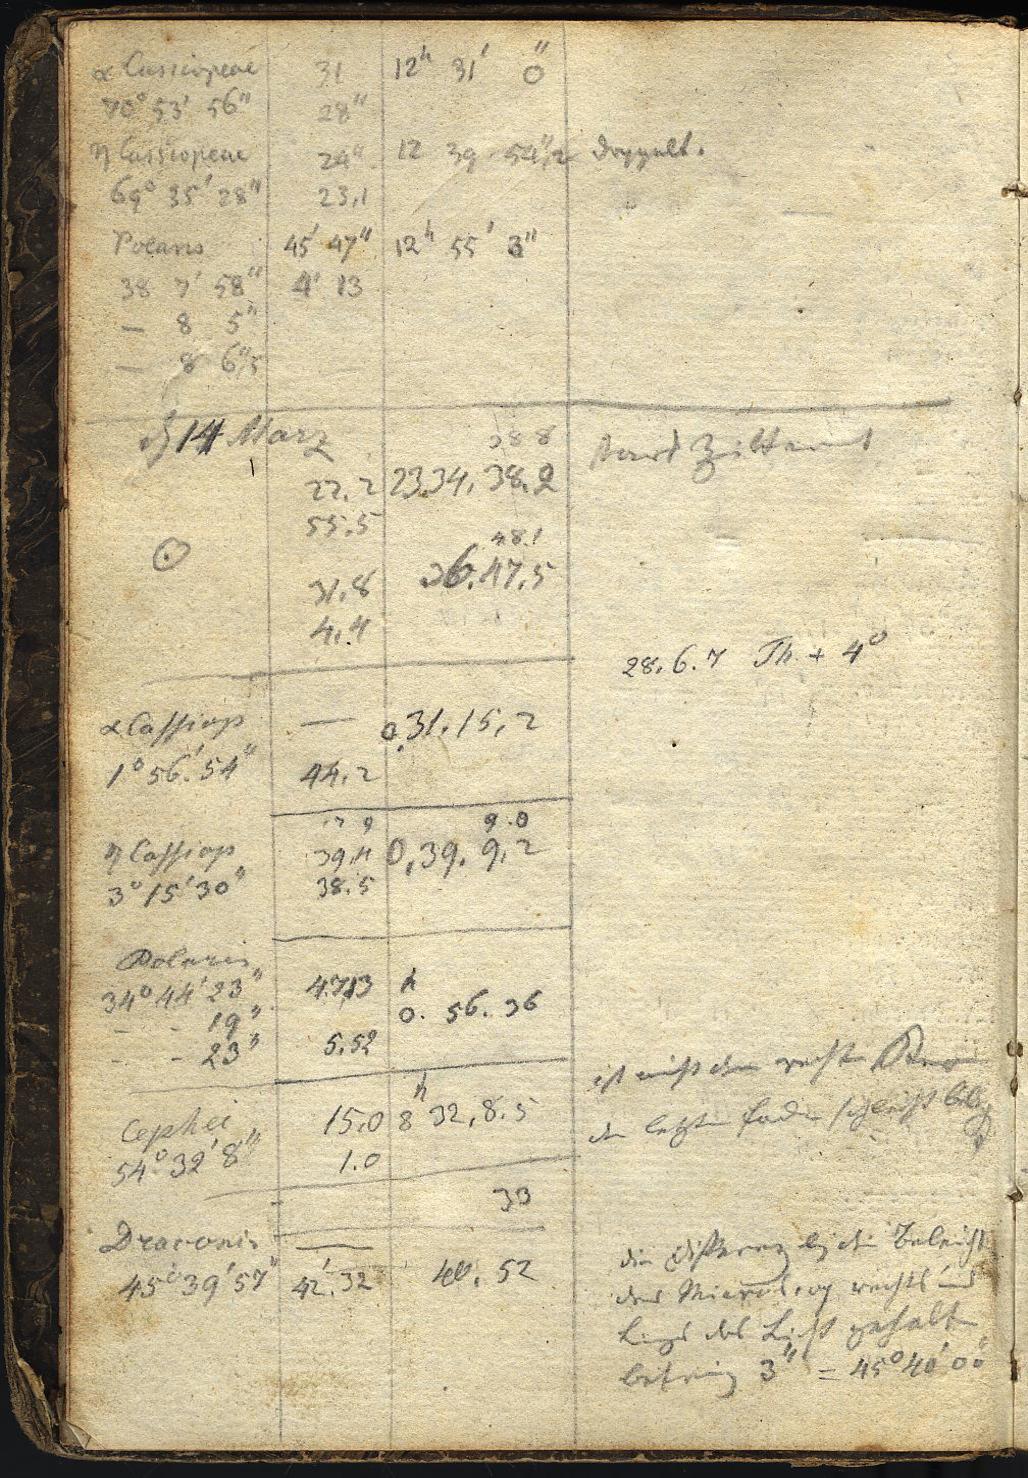 α Cassiopeae 31 12ʰ 31' 0"
70° 53' 56" 28"
η Cassiopeae 24" 12 39 54"½ doppelt.
69° 35' 28" 23,1
Polaris 45' 47" 12ʰ 55' 3"
38 7' 58" 4' 13
— 8 5"
— 8 6"/5
14 März 38 8
22.2 23.34.38.2 stark Zitternd
55.5
☉ 48.1
31.8 36.47.5
4.4
28.6.7 Th. + 4°
α Cassiop — 0.31.15,2
1° 56.' 54" 44.2
9.0
η Cassiop 39.4 0,39.9,2
3° 15' 30" 38.5
Polaris
34° 44' 23" 47,13 h
- - 19" 0. 56. 36
- - 23" 5.52
ist nicht der rechte
Cephei 15.0 8ʰ 32,8.5 der letzte Faden schlecht
54° 32' 8" 1.0
33
Draconis — die Differenz bei der Beleucht
45° 39' 57" 42'.32 40. 52 des Microscop rechts und
Links das Licht gehalten
betrug 3" = 45° 40' 00"